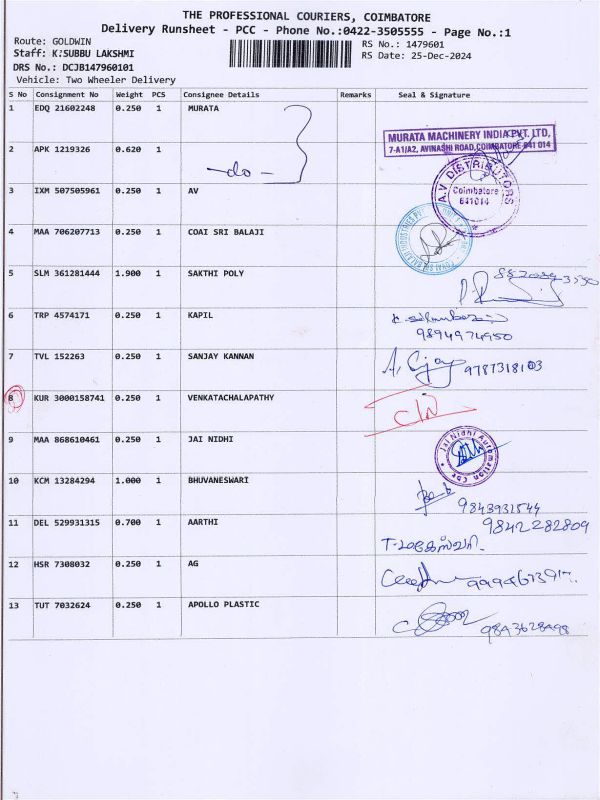 THE PROFESSIONAL COURIERS, COIMBATORE
Delivery Runsheet - PCC - Phone No.:0422-3505555 - Page No.:1
Route: GOLDWIN RS No.: 1479601
Staff: K:SUBBU LAKSHMI RS Date: 25-Dec-2024
DRS No.: DCJB147960101
Vehicle: Two Wheeler Delivery
S No Consignment No Weight PCS Consignee Details Remarks Seal & Signature
1 EDQ 21602248 0.250 1 MURATA
MURATA MACHINERY INDIA PVT. LTD,
7-A1/A2, AVINASHI ROAD, COIMBATORE-641 014
2 APK 1219326 0.620 1 -do-
3 IXM 507505961 0.250 1 AV A.V DISTRIBUTORS
Coimbatore
641014
4 MAA 706207713 0.250 1 COAI SRI BALAJI
5 SLM 361281444 1.900 1 SAKTHI POLY
6 TRP 4574171 0.250 1 KAPIL
9894974950
7 TVL 152263 0.250 1 SANJAY KANNAN 9787318103
8 KUR 3000158741 0.250 1 VENKATACHALAPATHY
9 MAA 868610461 0.250 1 JAI NIDHI Jai Nidhi Automation
10 KCM 13284294 1.000 1 BHUVANESWARI 9843931544
11 DEL 529931315 0.700 1 AARTHI 9842282809
T-மகேஸ்வரி
12 HSR 7308032 0.250 1 AG
13 TUT 7032624 0.250 1 APOLLO PLASTIC